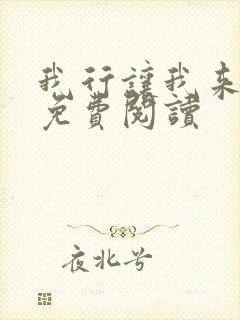 我行讓我来
免費閱讀
夜北兮